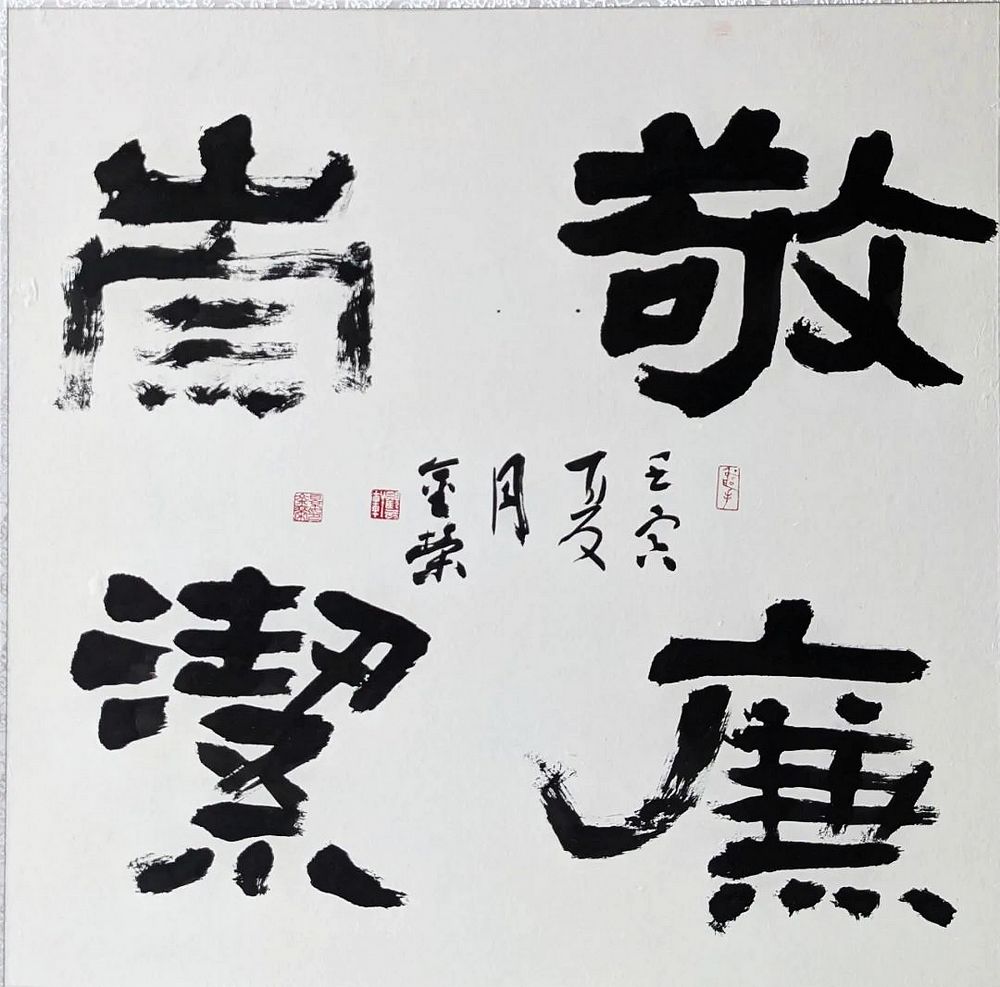 敬廉
崇潔
壬寅
夏
月
金榮